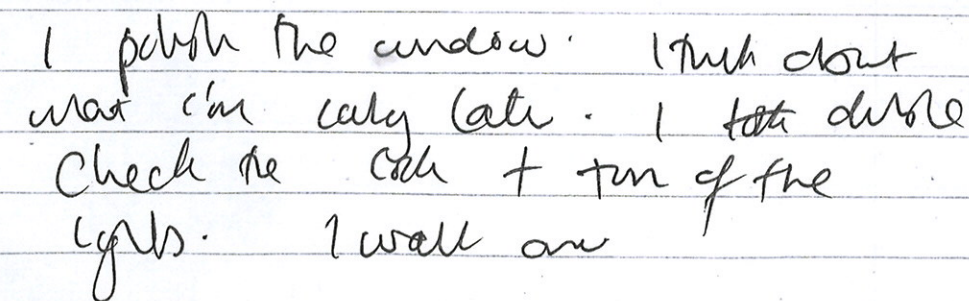 I polish the window. I think about
what I'm eating later. I double
check the lock + turn off the
lights. I walk